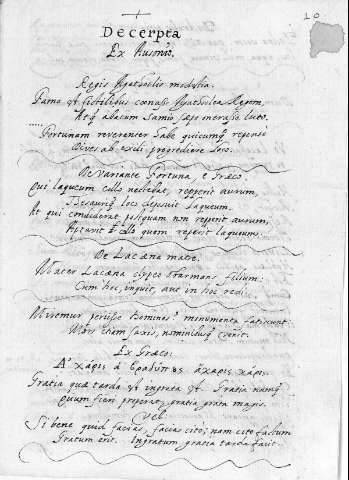 10
Decerpta
Ex Ausonio.
Regis Agathoclis modestia.
Fama est fictilibus coenasse Agathoclea Regem,
Atq abacum Samio saepe onerasse luto.
Fortunam reverenter habe quicumq repente
Dives ab exili progrediere loco.
De variante Fortuna, e Graeco.
Qui laqueum collo nectebat, repperit aurum,
Thesauriq loco deposuit laqueum.
At qui condiderat postquam non reperit aurum,
Aptavit collo quem reperit laqueum.
De Lacaena matre.
Mater Lacaena clypeo obarmans filium:
Cum hoc, inquit, aut in hoc redi.
Miremur periisse homines? monumenta fatiscunt.
Mors etiam saxis, nominibusq venit.
Ex Graeco:
Ἁ χάρις ἁ βραδύπους ἄχαρις χάρις.
Gratia quae tarda est ingrata est. Gratia namq
Quum fieri properat, gratia grata magis.
vel.
Si bene quid facias, facias cito; nam cito factum
Gratum erit. Ingratum gratia tarda facit.